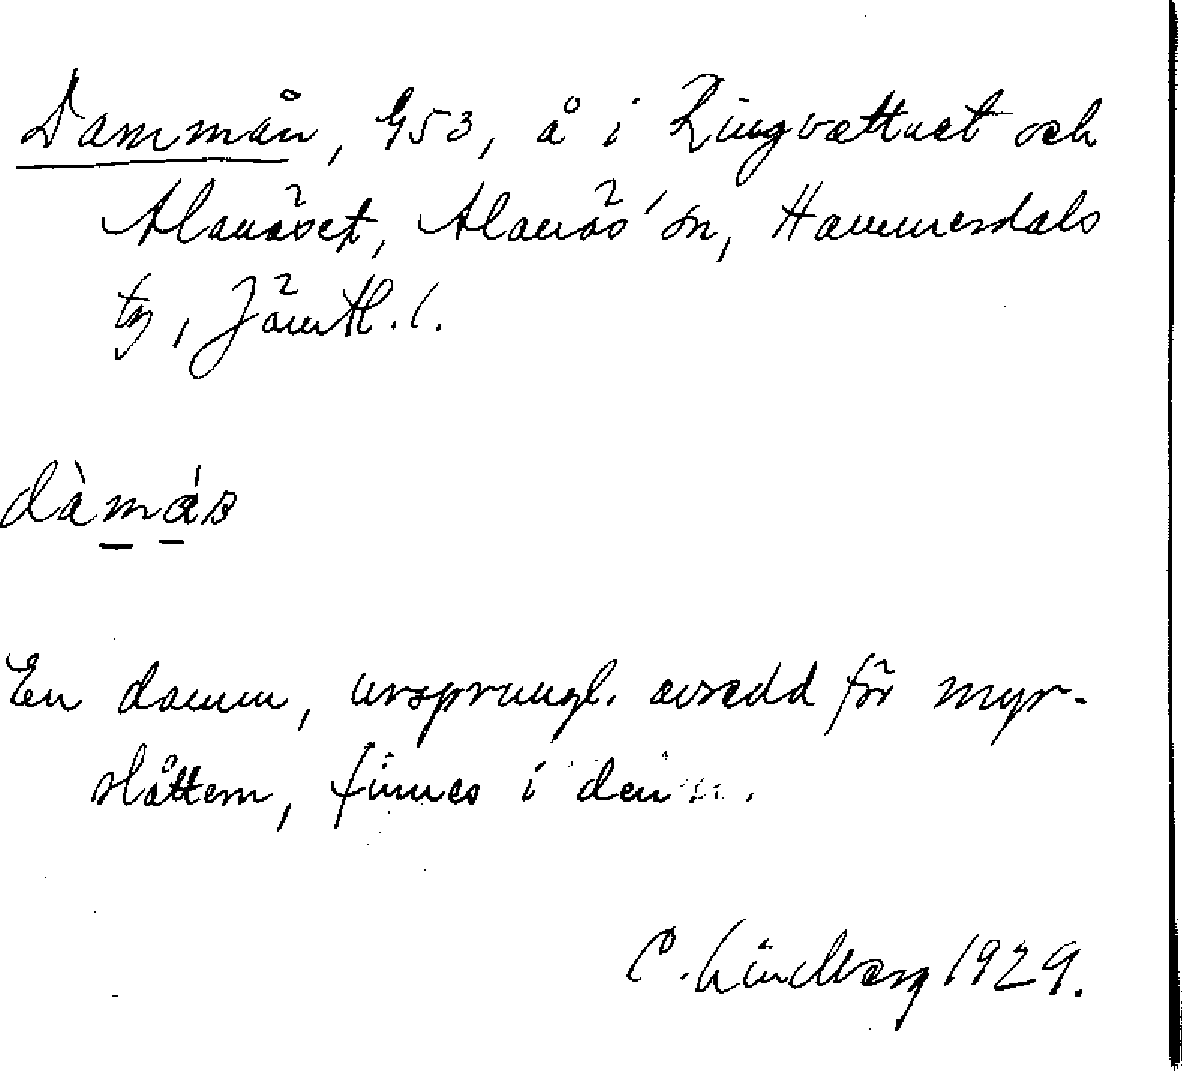 Dammån, 453, å i Ringvattnet och
Alanäset, Alanäs' sn, Hammerdals
tg, Jämtl. l.
dàmás
En damm, ursprungl. avsedd för myr-
slåttern, finnes i den.
C. Lindberg 1929.